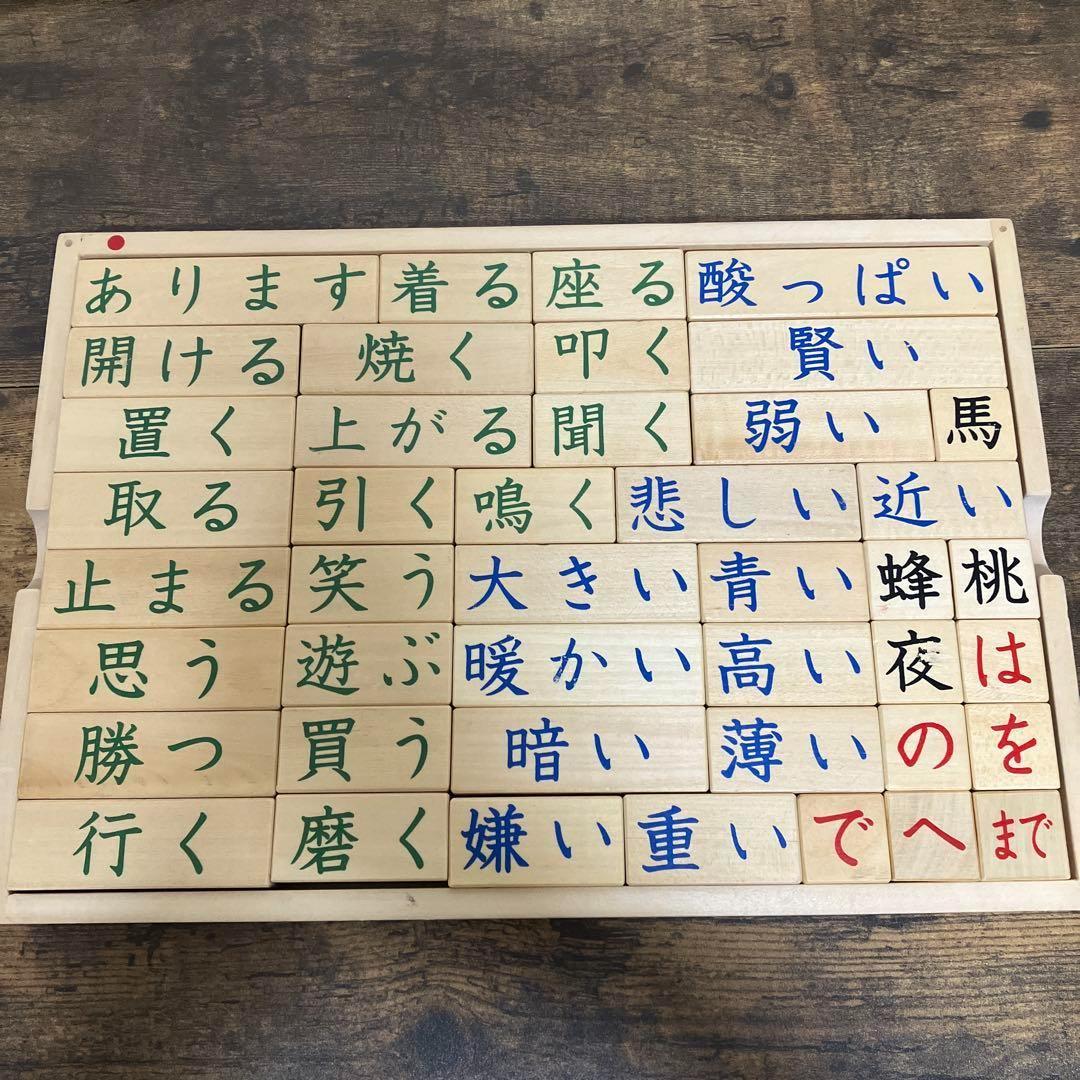 あります 着る 座る 酸っぱい
開ける 焼く 叩く 賢い
置く 上がる 聞く 弱い 馬
取る 引く 鳴く 悲しい 近い
止まる 笑う 大きい 青い 蜂 桃
思う 遊ぶ 暖かい 高い 夜 は
勝つ 買う 暗い 薄い の を
行く 磨く 嫌い 重い で へ まで